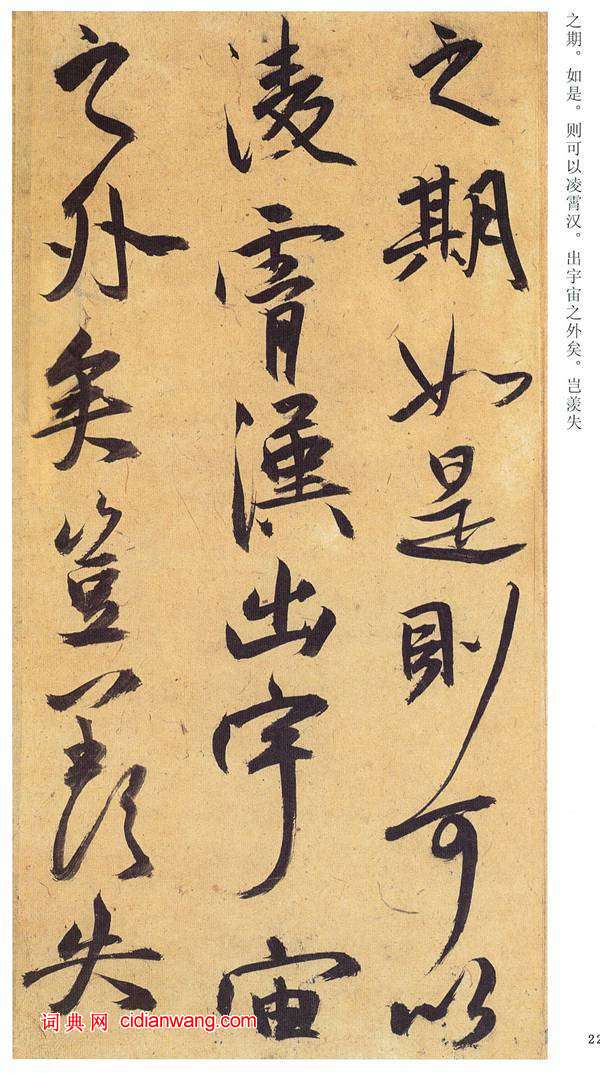 之期如是則可以
淩霄漢出宇宙
之外矣豈羨失
之期。如是。则可以凌霄汉。出宇宙之外矣。岂羡失
词典网 cidianwang.com
22